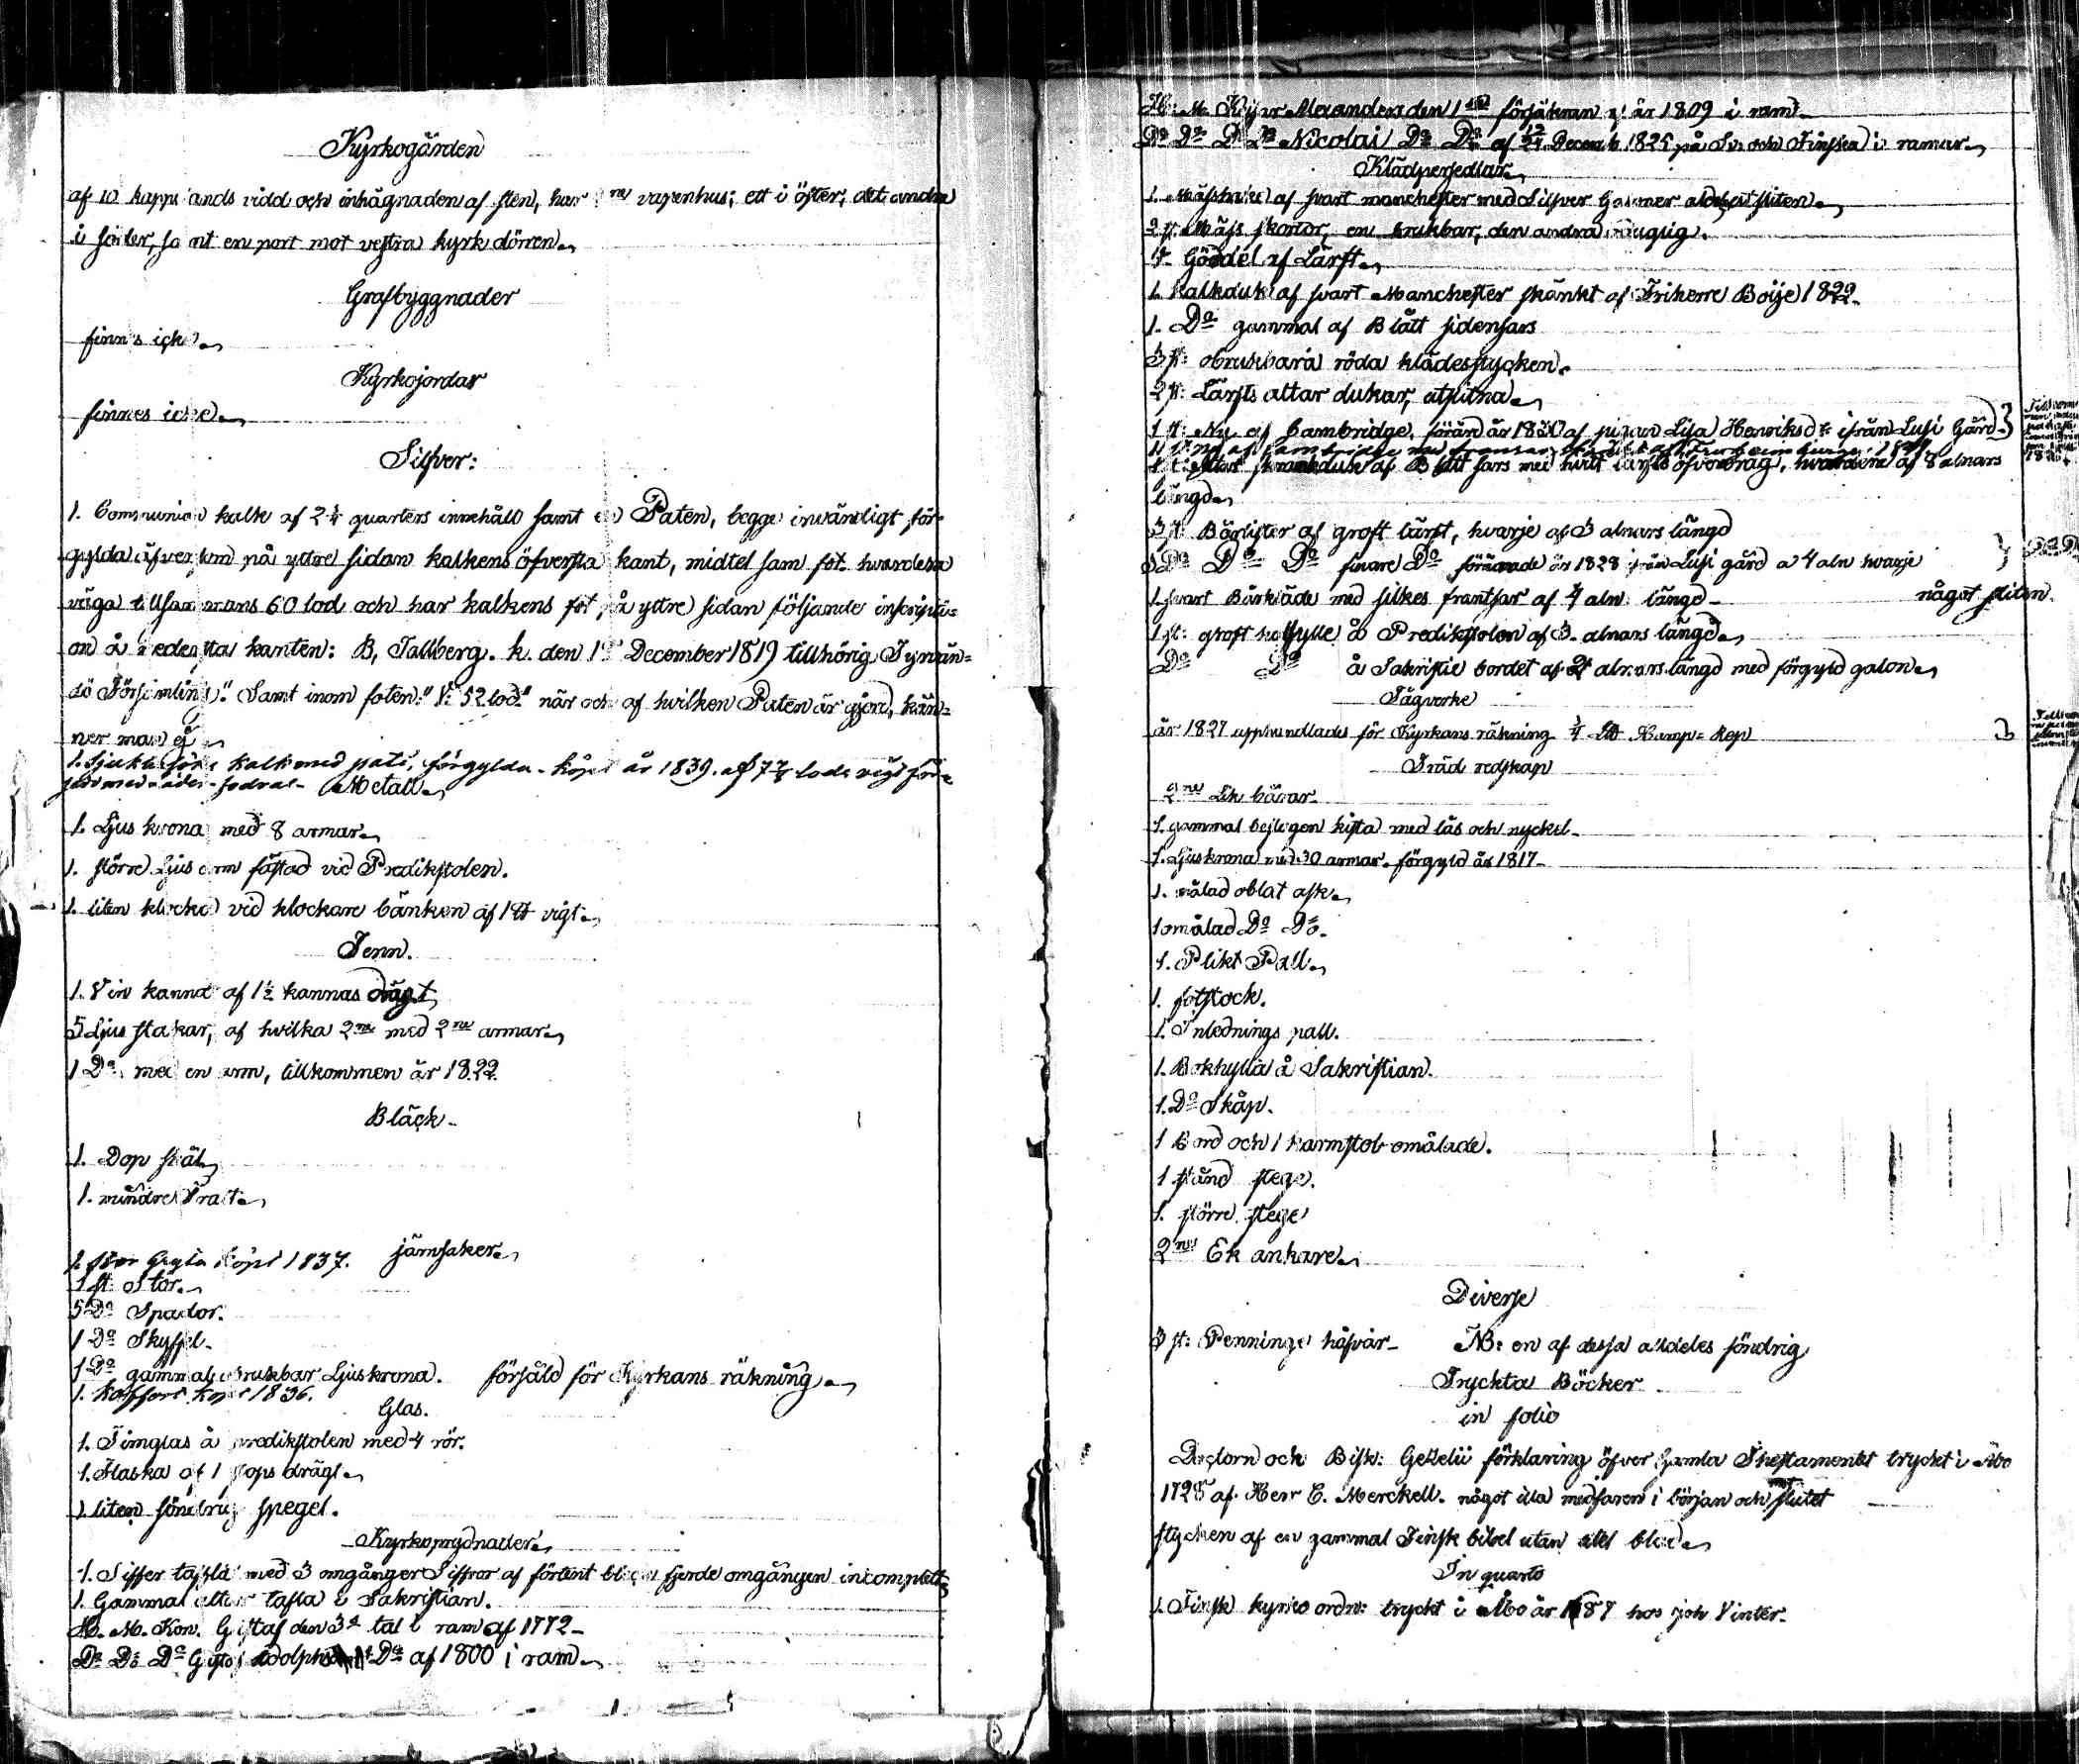 Kyrkogården
af 10 kapplands vidd och inhägnaden af sten, har 2ne vapenhus; ett i öster, det andra
i söder, samt en port mot vestra kyrk dörren
Grafbyggnader
finnes icke
Kyrkojordar
finnes icke
Silfver:
1. Communion kalk af 2 1/4 quarters innehåll samt en Paten, begge invändigt för-
gylda äfvensom på yttre sidan kalkens öfversta kant, midtel sam fot. hvardera
väga tillsammans 60 lod och har kalkens fot på yttre sidan följande inscripti=
on å nedersta kanten: B. Tallberg. k. den December 1819 tillhörig Tyrvän=
dö Församling." Samt inom foten: "V: 52 lod." när och af hvilken Paten är gjord, kän=
ner man ej
1. Sjuk kalk med patén, förgylda - köpt år 1839. af 7 lods vigt
med läder-fodral - Metall
1. Ljus krona med 8 armar
1. större Ljus arm fästad vid Predikstolen.
1. liten klocka vid klockare bänken af 1 ℔ vigt
Tenn.
1. Vin kanna af 1 1/2 kannas drägt
5 Ljus stakar, af hvilka 2ne med 2ne armar
1 Do med en arm, tillkommen år 1822.
Bläck-
1. Dop skål
1. mindre Tratt
1. stor Gryta köpt 1837. järnsaker
1 st: Stör.
5 Do Spador.
1 Do Skyffel-
1 Do gammal obrukbar Ljuskrona. försåld för Kyrkans räkning
1. Koffort köpt 1836.
Glas.
1. Timglas å predikstolen med 4 rör.
1. Flaska af 1 stops drägt
1. liten sönderbruten spegel.
Kyrkoprydnader
1. Siffer tafla med 3 omgånger Siffror af förtent bläck, fjerde omgången incomplett
1. Gammal altar tafla i Sakristian.
H. M. Kon. Gustaf den 3e tal i ram af 1772-
Do Do Do Gustaf Adolphs Do af 1800 i ram
H: M. Kejsar Alexanders den 1sta försäkran af år 1809 i ram
Do Do Do Do Nicolai Do Do af 12/24 Decemb 1825 på Sv. och Finska i ramar
Klädpersedlar
1. Mässhake af svart manchester med Silfver Galoner aldeles sliten
2 st: Mäss skjortor, en brukbar, den andra oduglig.
1 st. Gördel af Lärft
1. Kalkduk af svart Manchester skänkt af Friherre Boije 1822-
1. Do gammal af Blått sidensars
3 st: obrukbara röda klädesstycken.
2 st: Lärfts altar dukar, utslitna
1 st: Ny af Cambridge, förärad år 18 af pigan Lisa Henriksdr ifrån Lusi Gård
1 st: Ny af Cambridge med fransar
st: Altar skrankduk af Blått sars med hvitt lärfts öfverdrag, hvardera af 8 alnars
längd
3 st: Bårlister af groft lärft, hvarje af 3 alnars längd
Do Do Do finare Do förärade år 1828 från Lusi gård a 4 aln hvarje
1. svart Bårkläde med silkes frantsar af 4 aln längd - något sliten.
1 st: groft hyfflle å Predikstolen af 3. alnars längd
Do Do å Sakristie bordet af 2 alnars längd med förgyld galon
Tågverke
år 1827 upphandlades för Kyrkans räkning Hamp= Rep
Träd redskap
2ne Lik bårar-
1. gammal beslagen kista med lås och nyckel-
1. Ljuskrona med 30 armar. förgyld år 1817-
1. målad oblat ask
1 omålad Do Do.
1. Plikt Pall
1. fotstock.
1. Inlednings pall.
1. Bokhylla å Sakristian.
1. Do Skåp.
1 Bord och 1 karmstol omålade.
1 stånd stege.
1. större stege
2ne Ek ankare
Diverse
3 st: Penninge håfvar- NB: en af dessa aldeles söndrig
Tryckta Böcker
in folio
Doctorn och Bisk: Gezelii förklaring öfver Gamla Thestamentet tryckt i Åbo
1728 af Herr C. Merckell. något illa medfaren i början och slutet
stycken af en gammal Finsk bibel utan titel blad
In quarto
1. Finsk kyrko ordn: tryckt i Åbo år 1687 hos Joh Vinter.